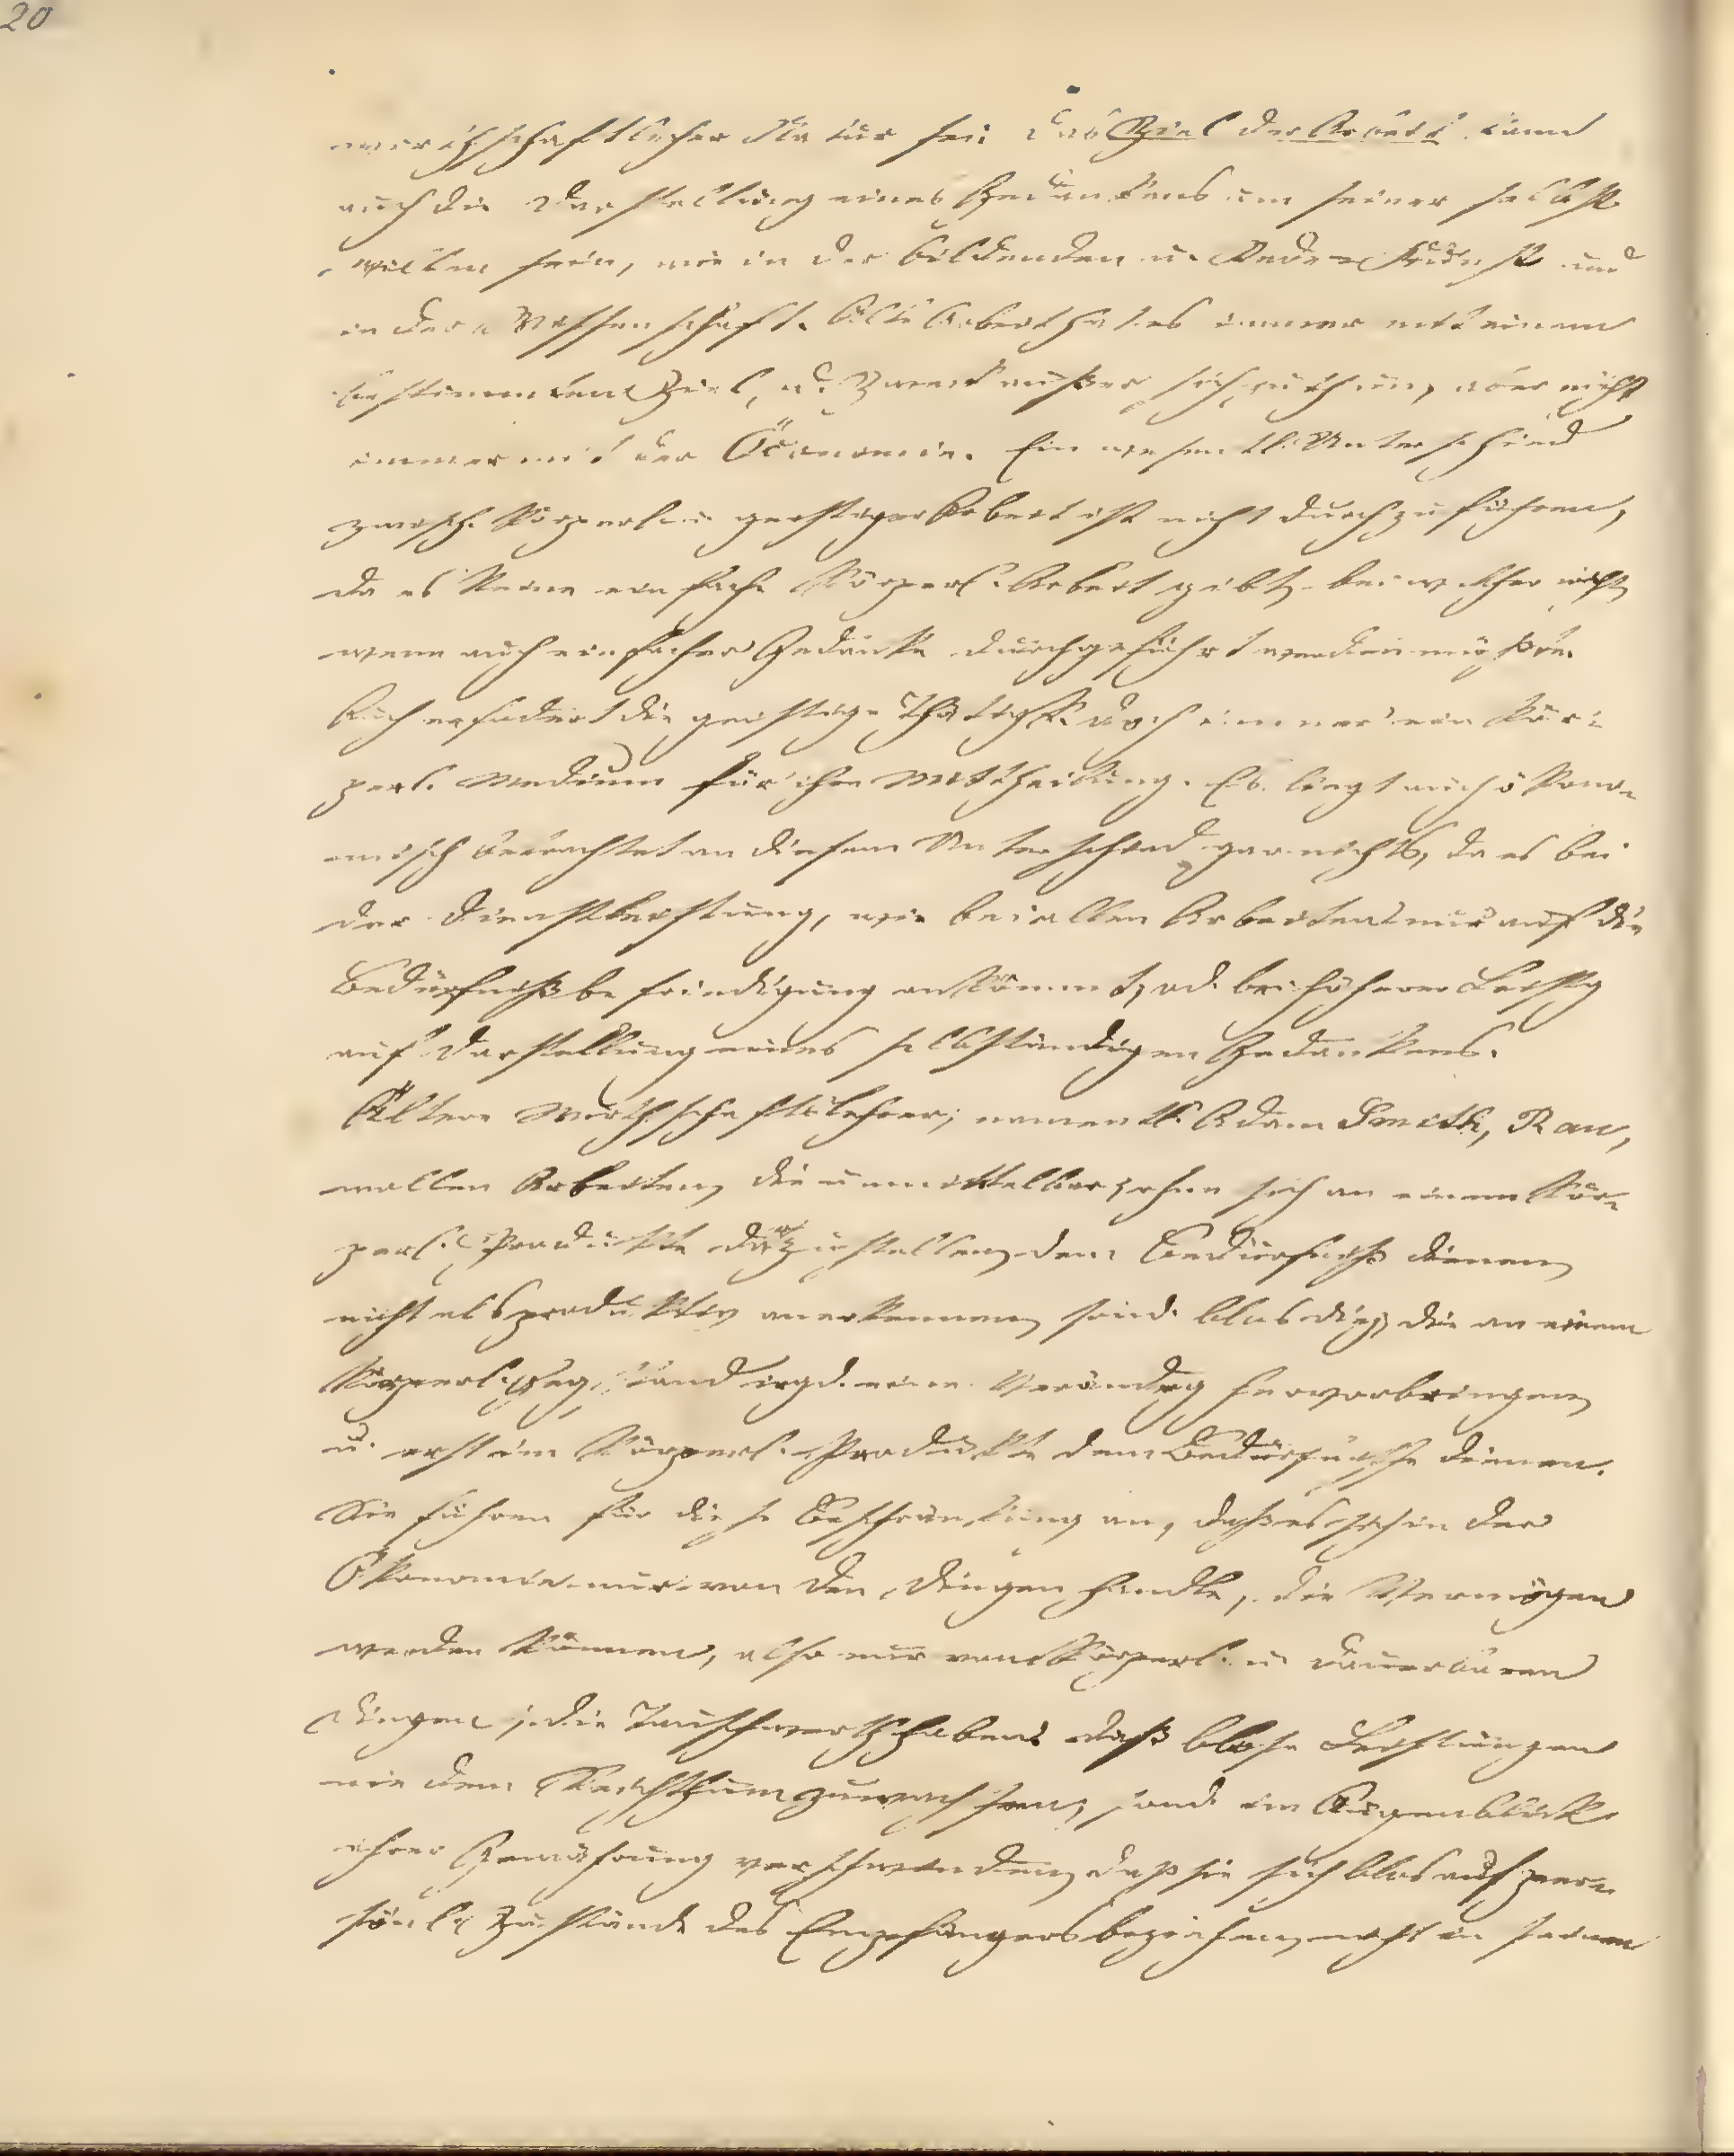 20
wirthschaftlicher Natur sei: das Ziel der Arbeit kann
auch die Darstellung eines Gedankens um seiner selbst
willen sein, wie in der bildenden u. Redekunst und
in der Wissenschaft. Alle Arbeit hat es immer mit einem
bestimmten Ziel, u. Zweck außer sich zu thun, aber nicht
immer mit der Öconomie. Ein wesentl. Unterschied
zwisch. körperl. u. geistiger Arbeit ist nicht durchzuführen,
da es keine einfache körperl. Arbeit gibt, bei welcher nicht
wenn auch einfacher Gedanke durchgeführt werden müßte.
Auch erfodert die geistige Thätigk. doch immer ein kör-
perl. Medium für ihre Mittheilung. Es liegt auch ökono-
misch betrachtet an diesem Unterschied gar nichts, da es bei
der Dienstleistung, wie bei allen Arbeiten nur auf die
Bedürfnißbefriedigung ankömmt, od. bei höherer Leistg
auf Darstellung eines selbständigen Gedankens.
Ältere Wirthschaftslehrer, namentl. Adam Smith, Rau,
wollen Arbeiten, die unmittelbar, ohne sich an einem kör-
perl. Produkte darzustellen, dem Bedürfniß dienen,
nicht als produktiv anerkennen, sond. blos die, die an einem
körperl. Gegenstand irgd. eine Verändrg hervorbringen
u. erst im körperl. Produkte dem Bedürfnisse dienen.
Sie führen für diese Beschränkung an, daß es sich in der
Ökonomie nur von den Dingen handle, die Vermögen
werden können, also nur von körperl. u. dauerbaren
Dingen, die Tauschwerth haben; daß blose Leistungen
nie dem Reichthum zuwachsen, sond. im Augenblick
ihrer Gewährung verschwinden, daß sie sich blos auf per-
sönl. Zustände des Empfängers beziehen, nicht in seinem